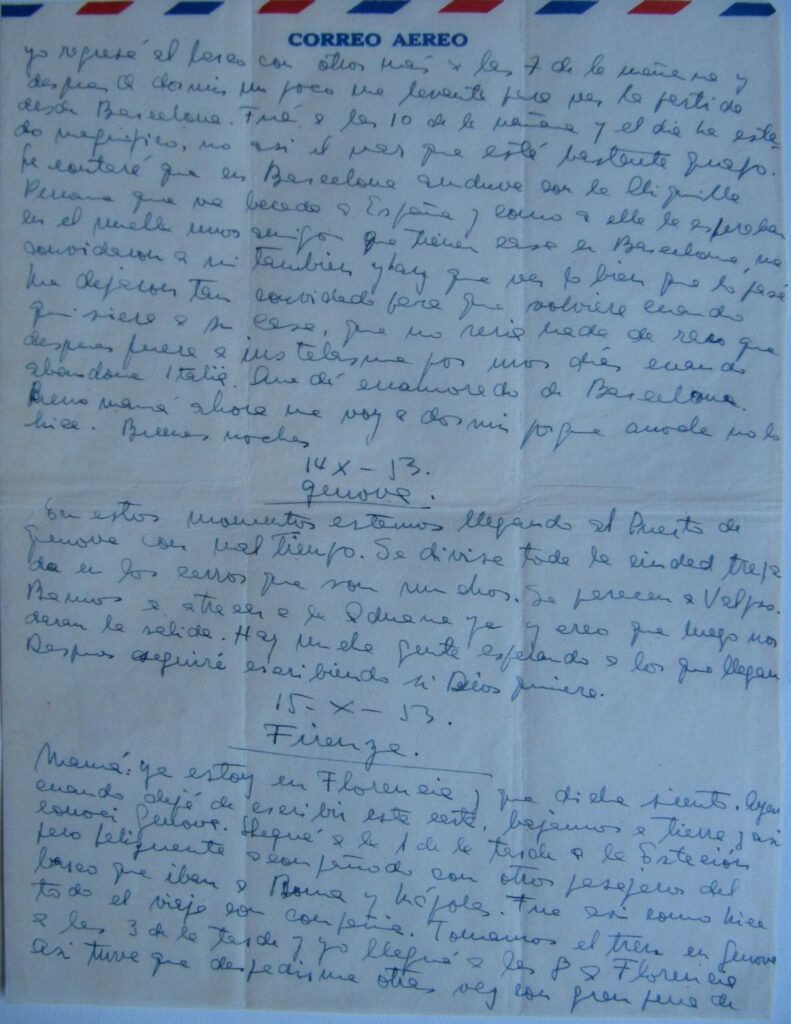 CORREO AEREO
yo regresé al barco con otros más a las 7 de la mañana y
despues de dormir un poco me levante para ver la partida
desde Barcelona. Fué a las 10 de la mañana y el dia ha esta-
do magnifico, no asi el mar que está bastante guapo.
Le contaré que en Barcelona anduve con la chiquilla
Peruana que va becada a España y como a ella la esperaban
en el muelle unos amigos que tienen casa en Barcelona, me
convidaron a mi tambien y hay que ver lo bien que lo pasé
Me dejaron tan convidado para que volviera cuando
quisiera a su casa, que no seria nada de raro que
despues fuera a instalarme por unos dias cuando
abandone Italia. Quedé enamorado de Barcelona.
Bueno mamá ahora me voy a dormir porque anoche no lo
hice. Buenas noches
14 X - 53.
Genova.
En estos momentos estamos llegando al Puerto de
Genova con mal tiempo. Se divisa toda la ciudad trepa
da en los cerros que son muchos. Se parecen a Valpo.
Bamos a atracar a la Aduana ya y creo que luego nos
daran la salida. Hay mucha gente esperando a los que llegan
Despues seguiré escribiendo si Dios quiere.
15 - X - 53.
Firenza.
Mamá: ya estoy en Florencia y que dicha siento. Ayer
cuando dejé de escribir esta carta, bajamos a tierra y asi
conoci Genova. Llegué a la 1 de la tarde a la Estación
pero felizmente acompañado con otros pasajeros del
barco que iban a Roma y Nápoles. Fue asi como hice
todo el viaje con compañia. Tomamos el tren en Genova
a las 3 de la tarde y yo llegué a las 8 a Florencia
asi tuve que despedirme otra vez con gran pena de